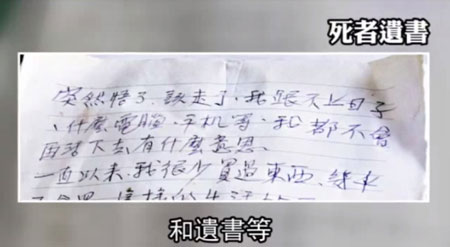 死者遺書
突然悟了.該走了,我跟不上日子
、什麼電腦、手机等,我都不會
再活下去有什麼意思.
一直以來.我很少買過東西,
和遺書等